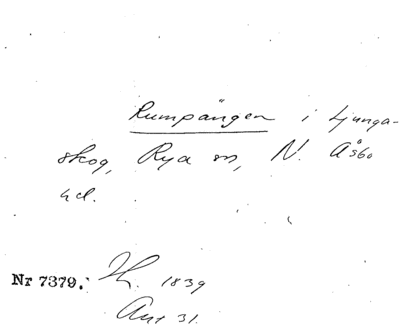 Rumpängen i Ljunga-
skog, Rya sn, N. Åsbo
hd.
Nr 7379. H. 1839
Aut 31.